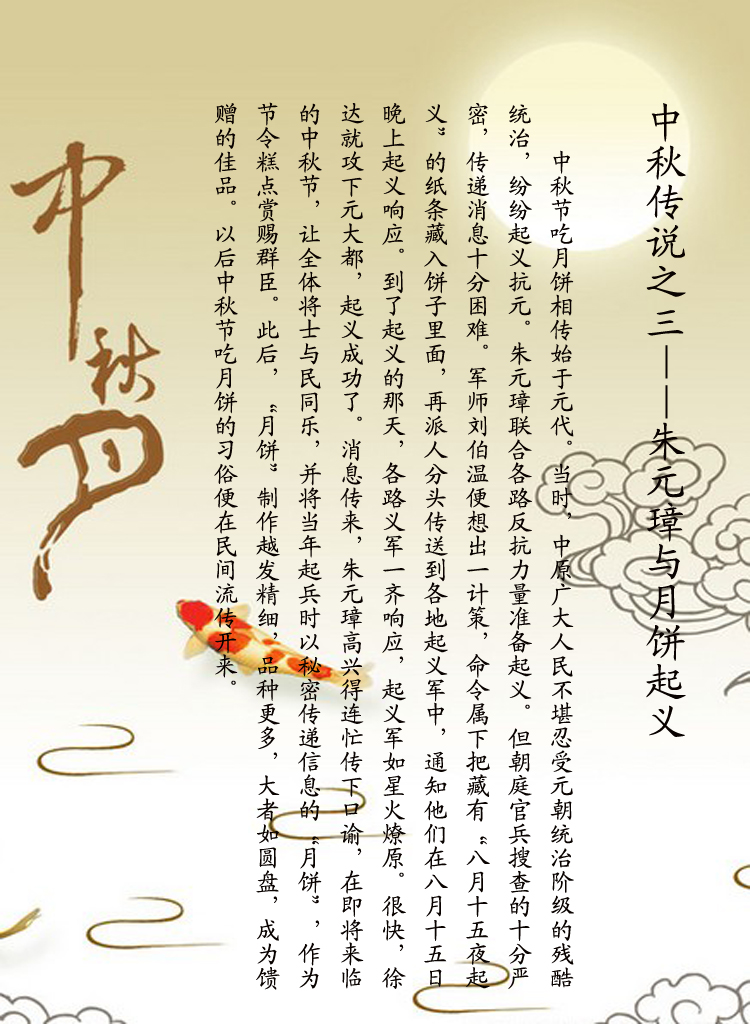 中秋传说之三——朱元璋与月饼起义
中秋节吃月饼相传始于元代。当时，中原广大人民不堪忍受元朝统治阶级的残酷
统治，纷纷起义抗元。朱元璋联合各路反抗力量准备起义。但朝庭官兵搜查的十分严
密，传递消息十分困难。军师刘伯温便想出一计策，命令属下把藏有“八月十五夜起
义”的纸条藏入饼子里面，再派人分头传送到各地起义军中，通知他们在八月十五日
晚上起义响应。到了起义的那天，各路义军一齐响应，起义军如星火燎原。很快，徐
达就攻下元大都，起义成功了。消息传来，朱元璋高兴得连忙传下口谕，在即将来临
的中秋节，让全体将士与民同乐，并将当年起兵时以秘密传递信息的“月饼”，作为
节令糕点赏赐群臣。此后，“月饼”制作越发精细，品种更多，大者如圆盘，成为馈
赠的佳品。以后中秋节吃月饼的习俗便在民间流传开来。
中秋月